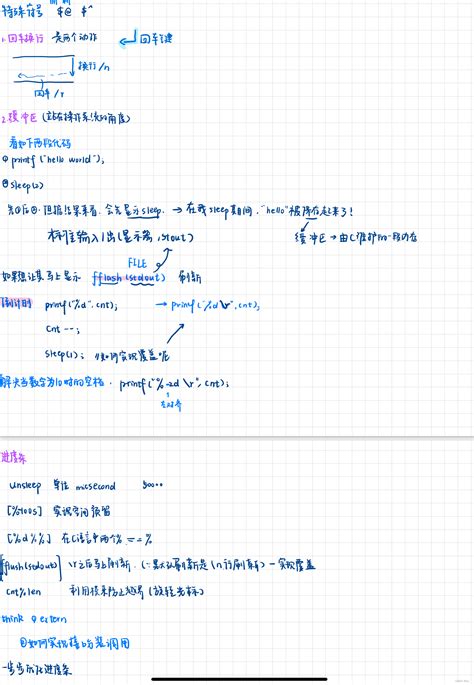 特殊符号 $@ $^
1. 回车换行 是两个动作 回车键
换行/n
回车/r
2. 缓冲区 (站在操作系统的角度)
看如下两段代码
① printf ("hello world");
② sleep(2)
先①后②,但据结果来看,会先显示sleep. → 在我sleep期间,"hello"被存起来了!
标准输入出(显示器, stout) 缓冲区→由C维护的一段内存
FILE
如果想让其马上显示 fflush(stdout) 刷新
倒计时 printf("%d", cnt); → printf("%d\r", cnt);
cnt--;
sleep(1); //如何实现覆盖呢
解决当数字为10时的空格. printf("%-2d\r", cnt);
左对齐
进度条
unsleep 单位 micsecond
[%100s] 实现空间预留
[%d%%] 在C语言中两个% == %
fflush(stdout) \r之后马上刷新. 实现覆盖
cnt%len 利用模来防止越界 (旋转光标)
think ① extern
②如何实现 调用
一步步 进度条